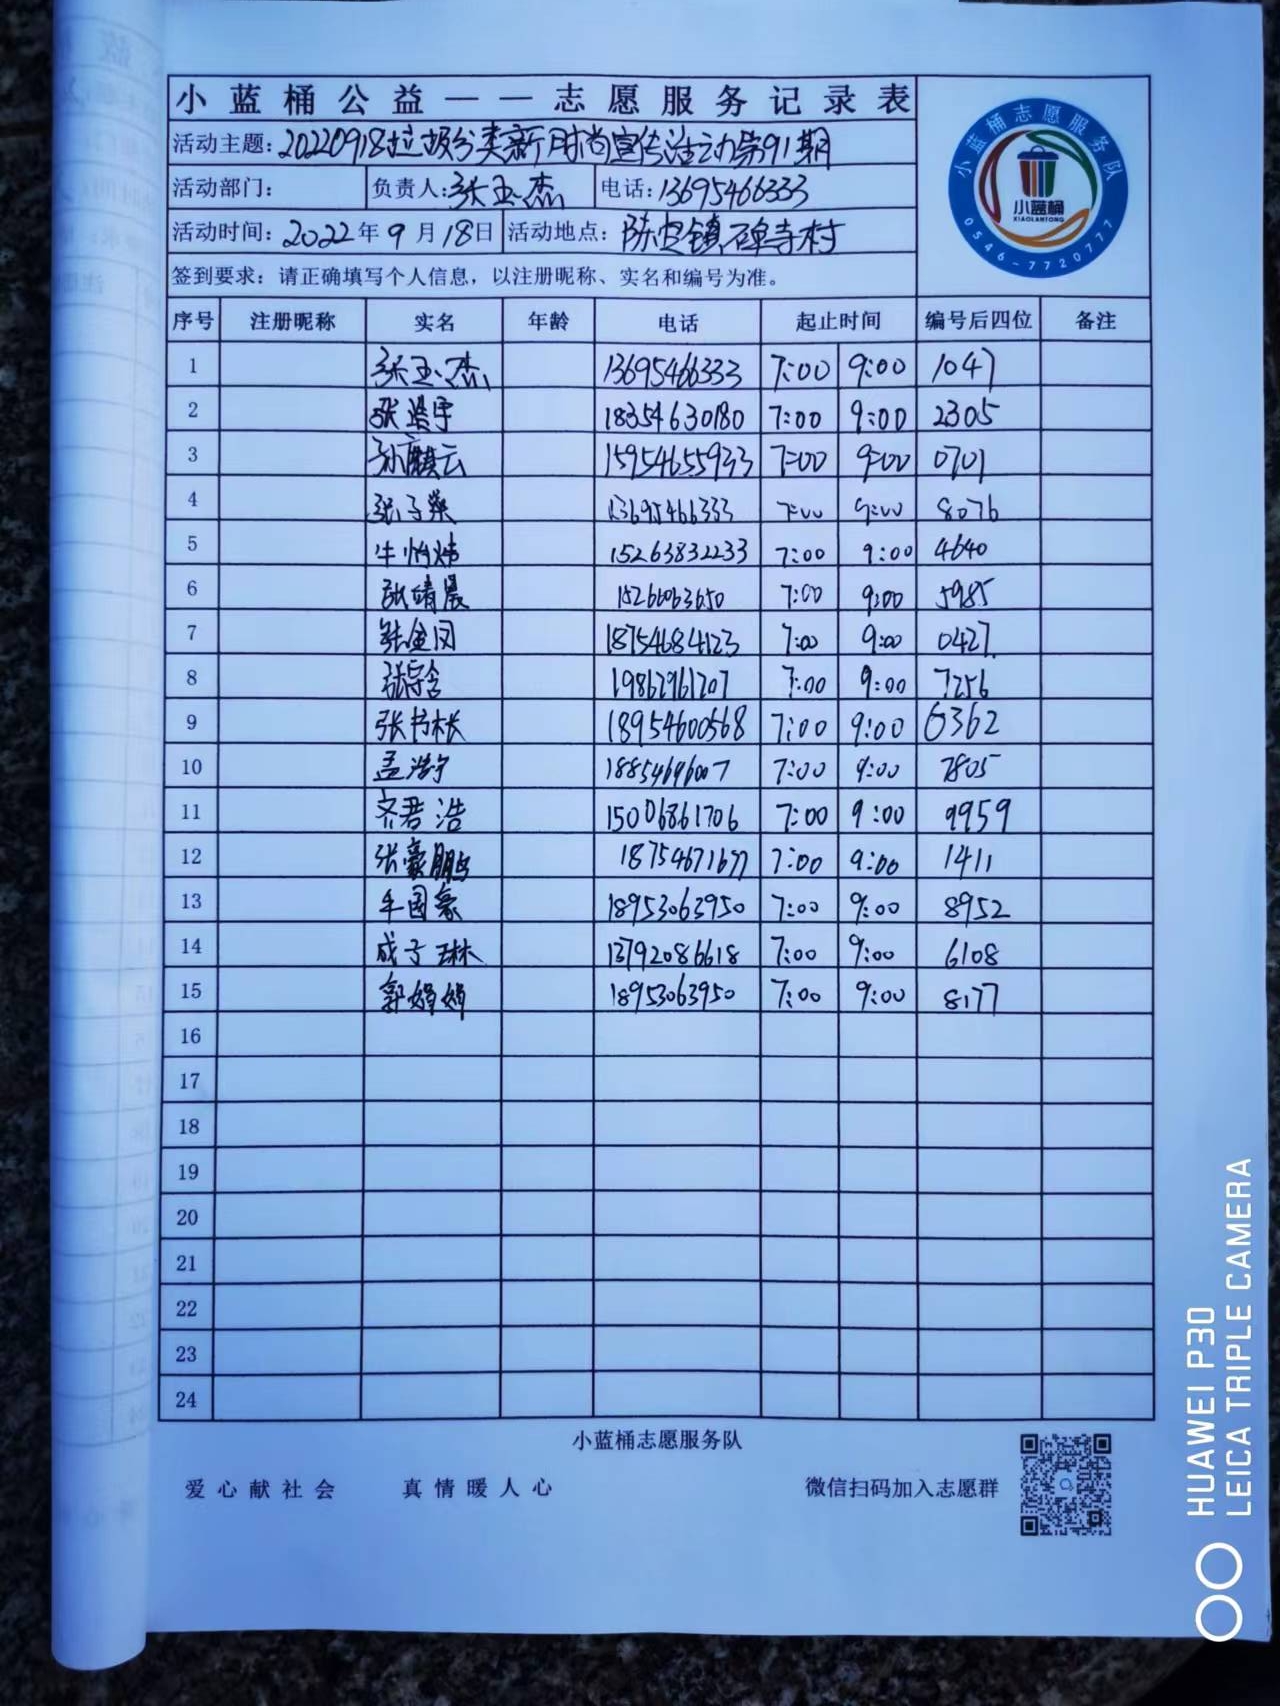 小蓝桶公益——志愿服务记录表
活动主题：20220918垃圾分类新时尚宣传活动第91期
活动部门： 负责人：张玉杰 电话：13695466333
活动时间：2022年9月18日 活动地点：陈官镇碑寺村
签到要求：请正确填写个人信息，以注册昵称、实名和编号为准。
小蓝桶志愿服务队
小蓝桶
XIAOLANTONG
0546-7720777
序号 注册昵称 实名 年龄 电话 起止时间 编号后四位 备注
1 张玉杰 13695466333 7:00 9:00 1047
2 张浩宇 18354630180 7:00 9:00 2305
3 孙麒云 15954655933 7:00 9:00 0701
4 张子 13695466333 7:00 9:00 8076
5 牛怡炜 15263832233 7:00 9:00 4640
6 张晴晨 15266063650 7:00 9:00 5985
7 金 18754684123 7:00 9:00 0427
8 张含 19862961207 7:00 9:00 7256
9 张书林 18954600568 7:00 9:00 6362
10 孟浩宁 18854696007 7:00 9:00 7805
11 齐君浩 15006861706 7:00 9:00 9959
12 张豪鹏 18754671677 7:00 9:00 1411
13 牟国豪 18953063950 7:00 9:00 8952
14 成子琳 13792086618 7:00 9:00 6108
15 郭娟娟 18953063950 7:00 9:00 8177
16
17
18
19
20
21
22
23
24
小蓝桶志愿服务队
爱心献社会 真情暖人心 微信扫码加入志愿群
HUAWEI P30
LEICA TRIPLE CAMERA